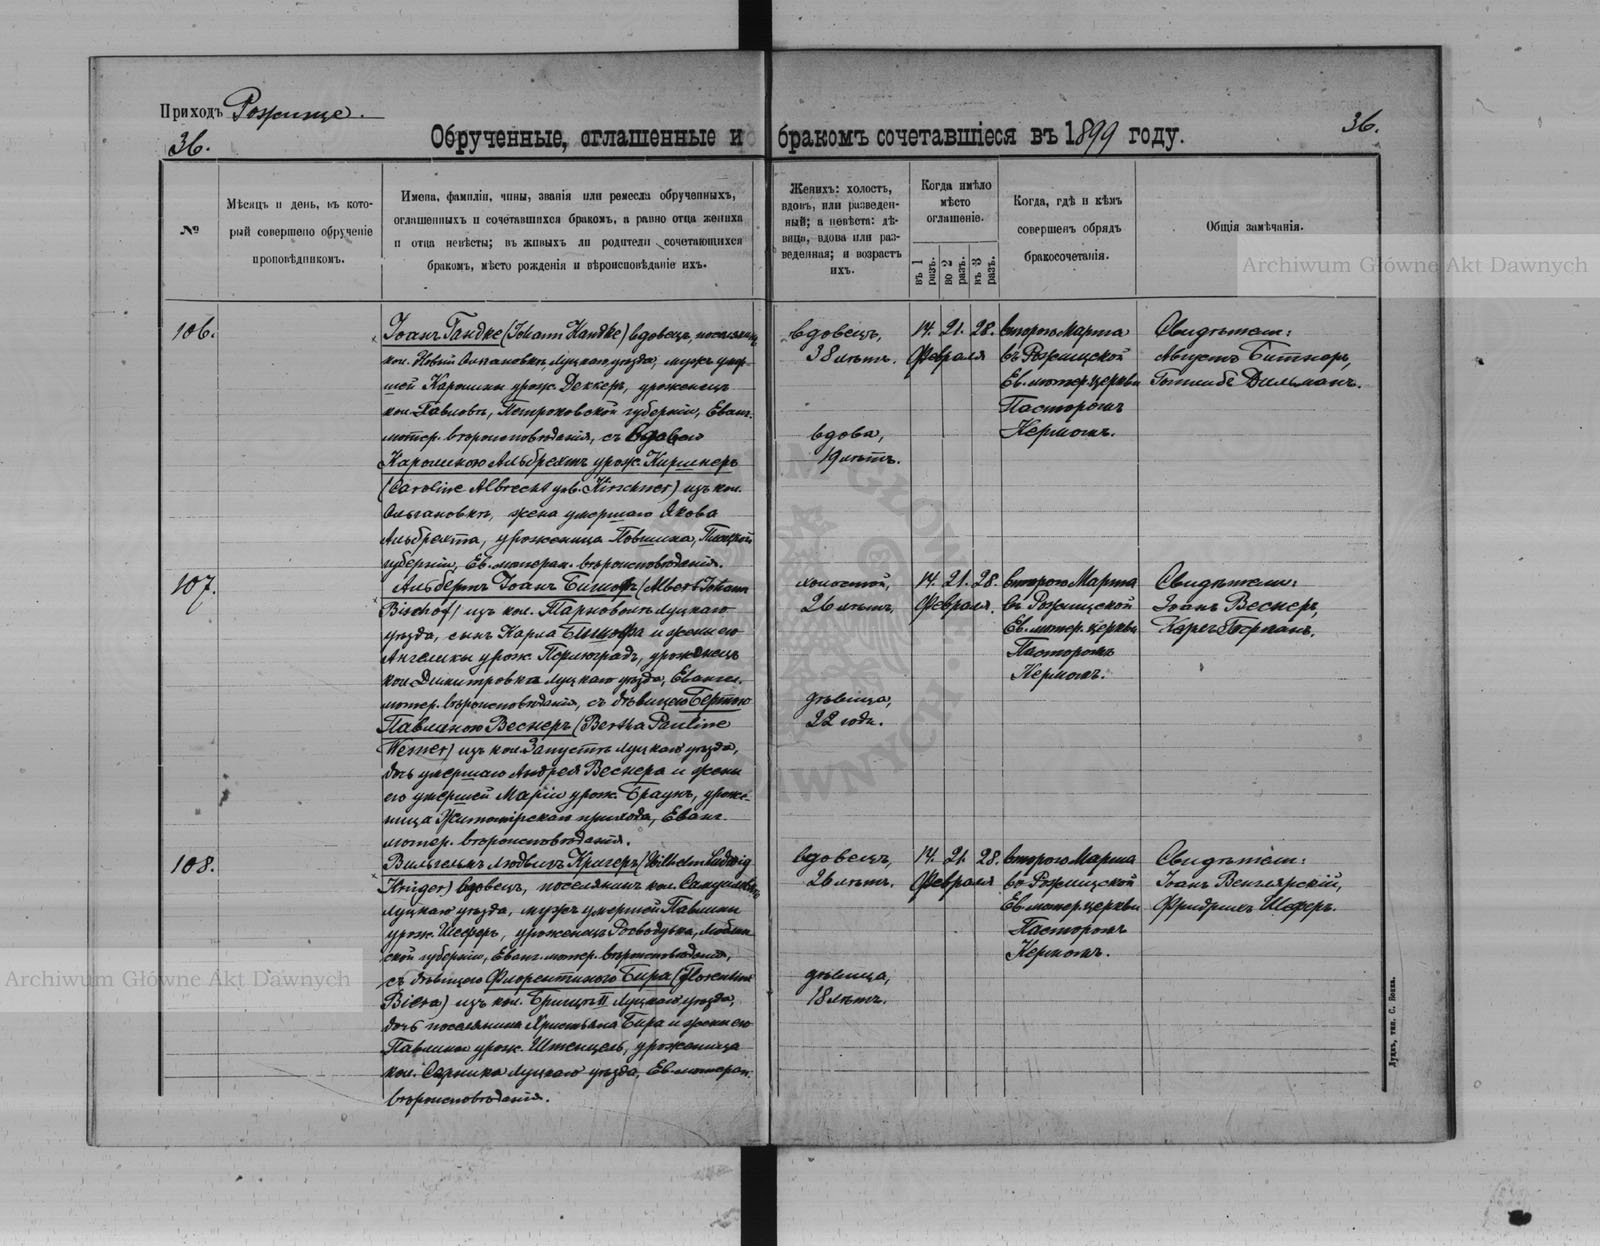 Приходъ Рожище.
36.
Обрученные, оглашенные и бракомъ сочетавшіеся въ 1899 году.
36.
№
Мѣсяцъ и день, въ кото-
рый совершено обрученіе
проповѣдникомъ.
Имена, фамиліи, чины, званія или ремесла обрученныхъ,
оглашенныхъ и сочетавшихся бракомъ, а равно отца жениха
и отца невѣсты; въ живыхъ ли родители сочетающихся
бракомъ, мѣсто рожденія и вѣроисповѣданіе ихъ.
Женихъ: холостъ,
вдовъ, или разведен-
ный; а невѣста: дѣ-
вица, вдова или раз-
веденная; и возрастъ
ихъ.
Когда имѣло
мѣсто
оглашеніе.
въ 1
разъ.
во 2
разъ.
въ 3
разъ.
Когда, гдѣ и кѣмъ
совершенъ обрядъ
бракосочетанія.
Общія замѣчанія.
106.
Іоанъ Гандке (Johann Handke) вдовецъ, поселянинъ
кол. Луцкаго уѣзда, мужъ умер-
шей Каролины урож. Деккеръ, уроженецъ
кол. Петроковской губерніи, Еванг.
лютер. вѣроисповѣданія, съ вдовой
Каролиною Альбрехтъ урож. Киршнеръ
(Caroline Albrecht geb. Kirschner) изъ кол.
Ольгановкъ, жена умершаго Якова
Альбрехта, уроженица
губерніи, Ев. лютеран. вѣроисповѣданія.
вдовецъ,
38 лѣтъ.
вдова,
19 лѣтъ.
14. 21. 28.
Февраля
второго Марта
въ Рожищской
Ев. лютер. церкви
Пасторомъ
Кермомъ.
Свидѣтели:
Августъ Битнеръ,
Готлибъ Дильманъ.
107.
Альбертъ Іоанъ Бишофъ (Albert Johann
Bischof) изъ кол. Луцкаго
уѣзда, сынъ Карла Бишофа и жены его
Ангелики урож. уроженецъ
кол. Димитровка Луцкаго уѣзда, Евангел.
лютер. вѣроисповѣданія, съ дѣвицею Бертою
Павлиною Веснеръ (Bertha Pauline
Wesner) изъ кол. Запустъ Луцкаго уѣзда,
дочь умершаго Андрея Веснера и жены
его умершей Маріи урож. Браунъ, уроже-
ница Житомірскаго прихода, Еванг.
лютер. вѣроисповѣданія.
холостой,
26 лѣтъ,
дѣвица,
22 года.
14. 21. 28.
Февраля
второго Марта
въ Рожищской
Ев. лютер. церкви
Пасторомъ
Кермомъ.
Свидѣтели:
Іоанъ Веснеръ,
Карлъ
108.
Вильгельмъ Людвигъ Кригеръ (Wilhelm Ludwig
Krüger) вдовецъ, поселянинъ кол.
Луцкаго уѣзда, мужъ умершей Павлины
урож. Шеферъ, уроженецъ Люблин-
ской губерніи, Еванг. лютер. вѣроисповѣданія,
съ дѣвицею Флорентиною Бира (Florentine
Biera) изъ кол. II Луцкаго уѣзда,
дочь поселянина Христьяна Бира и жены его
Павлины урож. Штенцель, уроженица
кол. Луцкаго уѣзда, Ев. лютеран.
вѣроисповѣданія.
вдовецъ,
26 лѣтъ.
дѣвица,
18 лѣтъ.
14. 21. 28.
Февраля
второго Марта
въ Рожищской
Ев. лютер. церкви
Пасторомъ
Кермомъ.
Свидѣтели:
Іоанъ Венглярскій,
Фридрихъ Шеферъ.
Луцкъ, тип. С. Бокка.
Archiwum Główne Akt Dawnych
Archiwum Główne Akt Dawnych